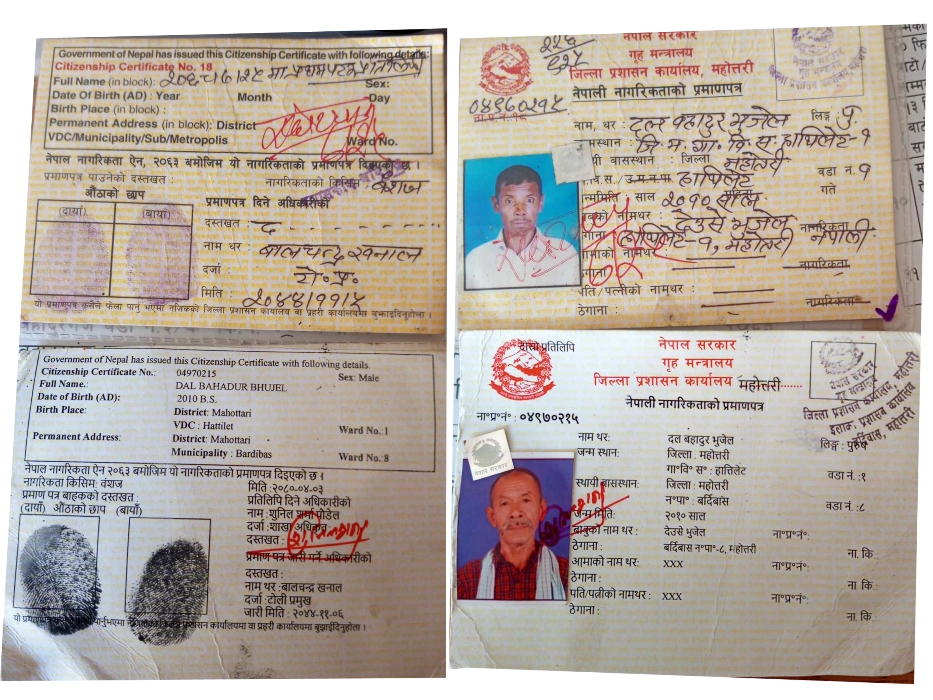 Government of Nepal has issued this Citizenship Certificate with following details:
Citizenship Certificate No. 18
Full Name (in block):
Sex:
Date Of Birth (AD): Year Month Day
Birth Place (in block) :
Permanent Address (in block): District
VDC/Municipality/Sub/Metropolis Ward No.
नेपाल नागरिकता ऐन, २०६३ बमोजिम यो नागरिकताको प्रमाणपत्र दिइएको छ ।
प्रमाणपत्र पाउनेको दस्तखत : नागरिकताको किसिम : वंशज
औंठाको छाप प्रमाणपत्र दिने अधिकारीको
(दायाँ) (बायाँ)
दस्तखत : द
नाम थर : बालचन्द्र खनाल
दर्जा :
मिति : २०४४।११।५
नेपाल सरकार
गृह मन्त्रालय
जिल्ला प्रशासन कार्यालय, महोत्तरी
नेपाली नागरिकताको प्रमाणपत्र
नाम, थर : दल बहादुर भुजेल लिङ्ग पु.
स्थायी बासस्थान : जिल्ला महोत्तरी
हात्तिलेट वडा नं. १
साल २०१० साल गते
देउसे भुजेल
हात्तिलेट-१, महोत्तरी नेपाली
नागरिकता
पति/पत्नीको नामथर :
ठेगाना : नागरिकता
Government of Nepal has issued this Citizenship Certificate with following details.
Citizenship Certificate No.: 04970215 Sex: Male
Full Name.: DAL BAHADUR BHUJEL
Date of Birth (AD): 2010 B.S.
Birth Place: District: Mahottari
VDC : Hattilet Ward No.:1
Permanent Address: District: Mahottari
Municipality : Bardibas Ward No.:8
नेपाल नागरिकता ऐन २०६३ बमोजिम यो नागरिकताको प्रमाणपत्र दिइएको छ ।
नागरिकता किसिम: वंशज मिति :२०८०-०४-०३
प्रमाण पत्र बाहकको दस्तखत : प्रतिलिपि दिने अधिकारीको
(दायाँ) औंठाको छाप (बायाँ) नाम : शुनिल शर्मा पौडेल
दर्जा :शाखा अधिकृत
दस्तखत :
प्रमाण पत्र जारी गर्ने अधिकारीको
दस्तखत :
नाम थर :बालचन्द्र खनाल
दर्जा: टोली प्रमुख
जारी मिति : २०४४-११-०६
दोस्रो प्रतिलिपि
नेपाल सरकार
गृह मन्त्रालय
जिल्ला प्रशासन कार्यालय महोत्तरी......
नेपाली नागरिकताको प्रमाणपत्र
ना०प्र०नं० : ०४९७०२१५
नाम थर: दल बहादुर भुजेल लिङ्ग : पुरुष
जन्म स्थान: जिल्ला : महोत्तरी
गा०वि० स० : हात्तिलेट वडा नं. :१
स्थायी बासस्थान: जिल्ला : महोत्तरी
न०पा० : बर्दिबास वडा नं. :८
जन्म मिति: २०१० साल
बाबुको नाम थर : देउसे भुजेल ना०प्र०नं०:
ठेगाना : बर्दिबास न०पा०-८, महोत्तरी ना. कि :
आमाको नाम थर: xxx ना०प्र०नं०:
ठेगाना : ना कि :
पति/पत्नीको नामथर : xxx ना०प्र०नं०:
ठेगाना : ना. कि :